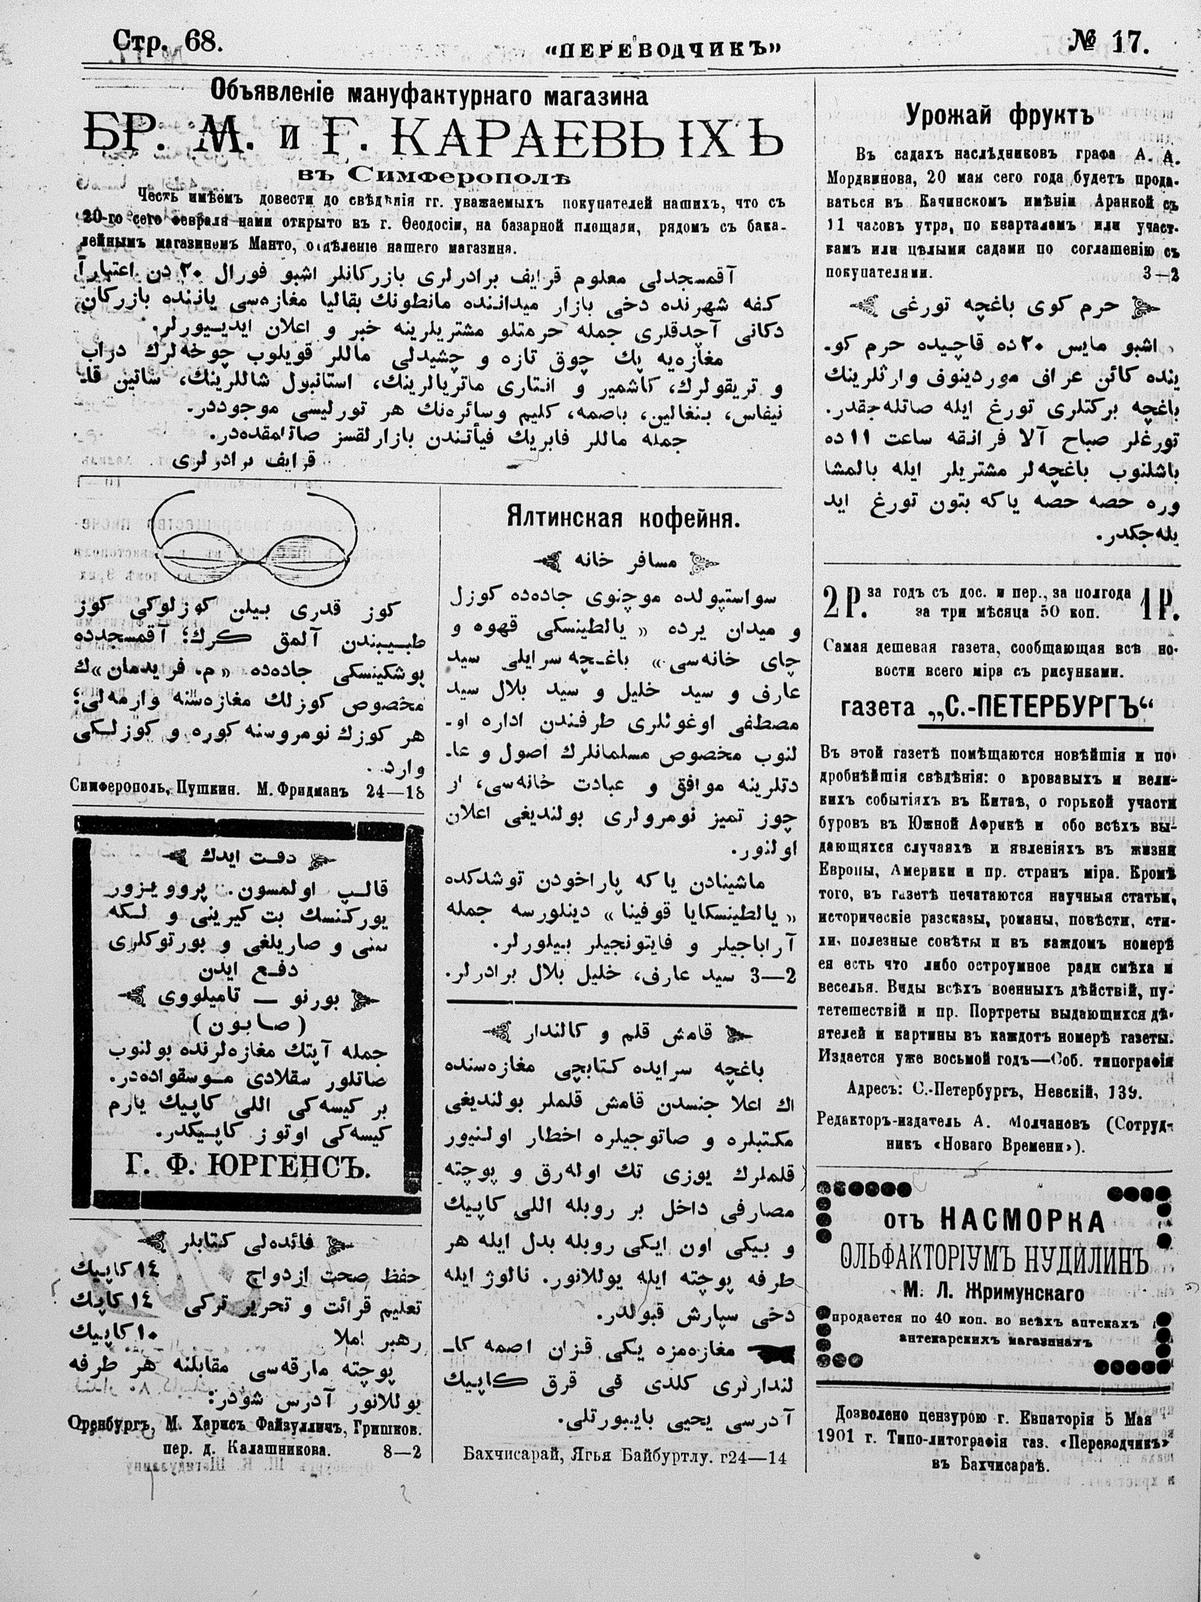 Стр. 68.
«ПЕРЕВОДЧИКЪ»
№ 17.
Объявленіе мануфактурнаго магазина
БР. М. и Г. КАРАЕВЫХЪ
въ Симферополѣ
Честь имѣемъ довести до свѣдѣнія гг. уважаемыхъ покупателей нашихъ, что съ
20-го сего февраля нами открыто въ г. Ѳеодосіи, на базарной площади, рядомъ съ бака-
лейнымъ магазиномъ Манто, отдѣленіе нашего магазина.
آقمسجدلى معلوم قرايف برادرلرى بازركانلر اشبو فورال ٢٠ دن اعتباراً
كفه شهرنده دخى بازار ميداننده مانطونك بقاليا مغازه‌سى ياننده بازركان
دكانى آچدقلرى جمله حرمتلو مشتريلرينه خبر و اعلان ايديـيورلر.
مغازه‌يه پك چوق تازه و چشيدلى ماللر قويلوب چوخه‌لرك دراب
و تريقولرك، كاشمير و انتارى ماتريالرينك، استانبول شاللرينك، ساتين قا-
نيفاس، بنغالين، باصمه، كليم وسائره‌نك هر تورليسى موجوددر.
جمله ماللر فابريك فيأتندن بازارلقسز صاتلمقده‌در.
قرايف برادرلرى
كوز قدرى بيلن كوزلوكى كوز
طبيبندن آلمق كرك؛ آقمسجدده
پوشكينسكى جاده‌ده «م. فريدمان»ك
مخصوص كوزلك مغازه‌سنه وارمه‌لى؛
هر كوزك نومروسنه كوره و كوزلكى
وارد.
Симферополь, Пушкин. М. Фридманъ 24—18
دقت ايدك
قالپ اولمسون. پروويزور
يوركنسك بت كيرينى و لكه
سنى و صاريلغى و بورتوكلرى
دفع ايدن
بورنو — تاميلووى
(صابون)
جمله آپتك مغازه‌لرنده بولنوب
صاتلور سقلادى موسقواده‌در.
بر كيسه‌كى اللى كاپيك يارم
كيسه‌كى اوتوز كاپيكدر.
Г. Ф. ЮРГЕНСЪ.
فائده‌لى كتابلر
حفظ صحت ازدواج ١٤ كاپيك
تعليم قرائت و تحرير تركى ١٤ كاپك
رهبر املا ١٠ كاپيك
پوچته مارقه‌سى مقابلنه هر طرفه
يوللانور آدرس شودر:
Оренбургъ, М. Харисъ Файзуллич, Гришков.
пер. д. Калашникова. 8—2
Ялтинская кофейня.
مسافر خانه
سواستپولده موچنوى جاده‌ده كوزل
و ميدان يرده «يالطينسكى قهوه و
چاى خانه‌سى» باغچه سرايلى سيد
عارف و سيد خليل و سيد بلال سيد
مصطفى اوغوللرى طرفندن اداره او-
لنوب مخصوص مسلمانلرك اصول و عا-
دتلرينه موافق و عبادت خانه‌سى، ار
چوز تميز نومرولرى بولنديغى اعلان
اولنور.
ماشينادن ياكه پاراخودن توشدكده
«يالطينسكايا قوفينا» دينلورسه جمله
آراباجيلر و فايتونجيلر بيلورلر.
3—2 سيد عارف، خليل بلال برادرلر.
قامش قلم و كالندار
باغچه سرايده كتابچى مغازه‌سنده
اك اعلا جنسدن قامش قلملر بولنديغى
مكتبلره و صاتوجيلره اخطار اولنيور
قلملرك يوزى تك اوله‌رق و پوچته
مصارفى داخل بر روبله اللى كاپيك
و بيكى اون ايكى روبله بدل ايله هر
طرفه پوچته ايله يوللانور. نالوژ ايله
دخى سپارش قبولدر.
مغازه‌مزه يكى قزان اصمه كا-
لندارلرى كلدى فى قرق كاپيك
آدرسى يحيى بايبورتلى.
Бахчисарай, Ягья Байбуртлу. г24—14
Урожай фруктъ
Въ садахъ наслѣдниковъ графа А. А.
Мордвинова, 20 мая сего года будетъ прода-
ваться въ Качинскомъ имѣніи Аранкой съ
11 часовъ утра, по кварталамъ или участ-
камъ или цѣлыми садами по соглашенію съ
покупателями. 3—2
حرم كوى باغچه تورغى
اشبو مايس ٢٠ده قاچيده حرم كو-
ينده كائن عراف موردينوف وارثلرينك
باغچه بركتلرى تورغ ايله صاتله‌جقدر.
تورغلر صباح آلا فرانقه ساعت ١١ ده
باشلنوب باغچه‌لر مشتريلر ايله بالمشا
وره حصه حصه ياكه بتون تورغ ايد
يله‌جكدر.
2 Р. за годъ съ дос. и пер., за полгода 1 Р.
за три мѣсяца 50 коп.
Самая дешевая газета, сообщающая всѣ но-
вости всего міра съ рисунками.
газета „С.-ПЕТЕРБУРГЪ“
Въ этой газетѣ помѣщаются новѣйшія и по-
дробнѣйшія свѣдѣнія: о кровавыхъ и вели-
кихъ событіяхъ въ Китаѣ, о горькой участи
буровъ въ Южной Африкѣ и обо всѣхъ вы-
дающихся случаяхъ и явленіяхъ въ жизни
Европы, Америки и пр. странъ міра. Кромѣ
того, въ газетѣ печатаются научныя статьи,
историческіе разсказы, романы, повѣсти, сти-
хи, полезные совѣты и въ каждомъ номерѣ
ея есть что либо остроумное ради смѣха и
веселья. Виды всѣхъ военныхъ дѣйствій, пу-
тетешествій и пр. Портреты выдающихся дѣ-
ятелей и картины въ каждотъ номерѣ газеты.
Издается уже восьмой годъ—Соб. типографія
Адресъ: С.-Петербургъ, Невскій, 139.
Редакторъ-издатель А. Молчановъ (Сотруд-
никъ «Новаго Времени»).
отъ НАСМОРКА
ОЛЬФАКТОРІУМЪ НУДИЛИНЪ
М. Л. Жримунскаго
продается по 40 коп. во всѣхъ аптекахъ и
аптекарскихъ магазинахъ
Дозволено цензурою г. Евпаторія 5 Мая
1901 г. Типо-литографія газ. «Переводчикъ»
въ Бахчисараѣ.